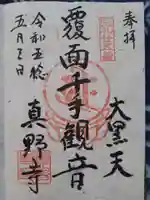 奉拝
大黒天
覆面千手観音
真野寺
令和五年
五月三日